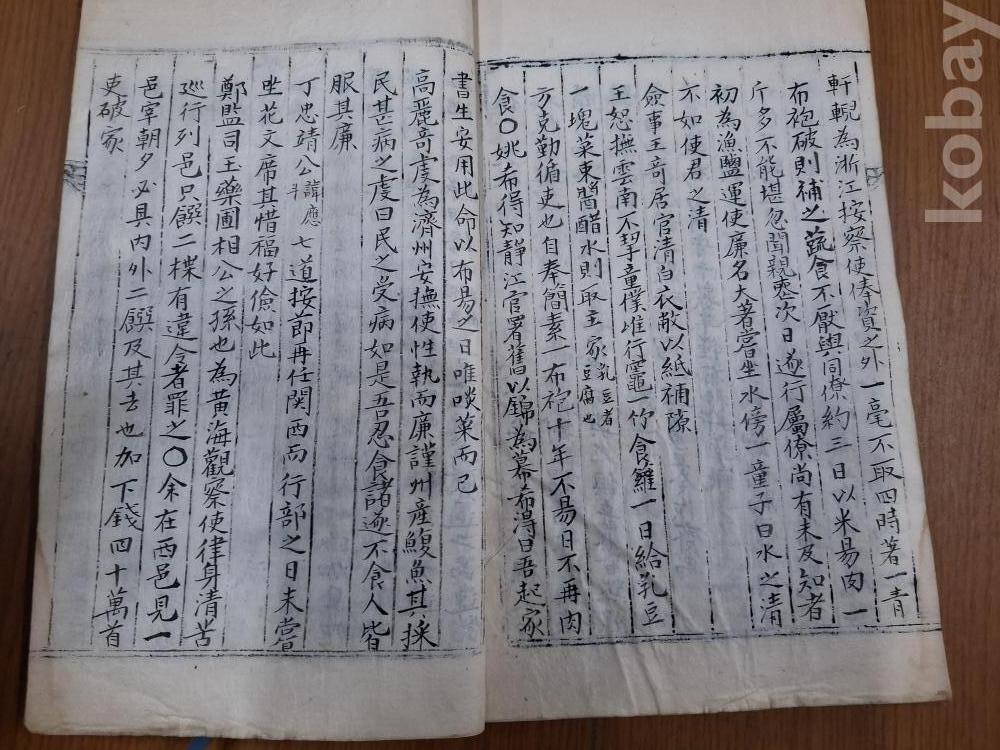 軒輗為浙江按察使俸資之外一毫不取四時著一青
布袍破則補之蔬食不厭與同僚約三日以米易肉一
斤多不能堪忽聞親喪次日遂行屬僚尚有未及知者
初為漁鹽運使廉名大著嘗坐水傍一童子曰水之清
不如使君之清
僉事王奇居官清白衣敝以紙補隙
王恕撫雲南不挈童僕唯行竈一竹食籮一日給乳豆
一塊菜束醬醋水則取主家乳豆者豆腐也
方克勤循吏也自奉簡素一布袍十年不易日不再肉
食〇姚希得知靜江官署舊以錦為幕希得曰吾起家
書生安用此命以布易之日唯啖菜而已
高麗奇虔為濟州安撫使性執而廉謹州産鰒魚其採
民甚病之虔曰民之受病如是吾忍食諸遂不食人皆
服其廉
丁忠靖公諱應斗七道按節再任関西而行部之日未嘗
坐花文席其惜福好儉如此
鄭監司玉藥圃相公之孫也為黄海觀察使律身清苦
巡行列邑只饌二楪有違令者罪之〇余在西邑見一
邑宰朝夕必具内外二饌及其去也加下錢四十萬首
吏破家
kobay